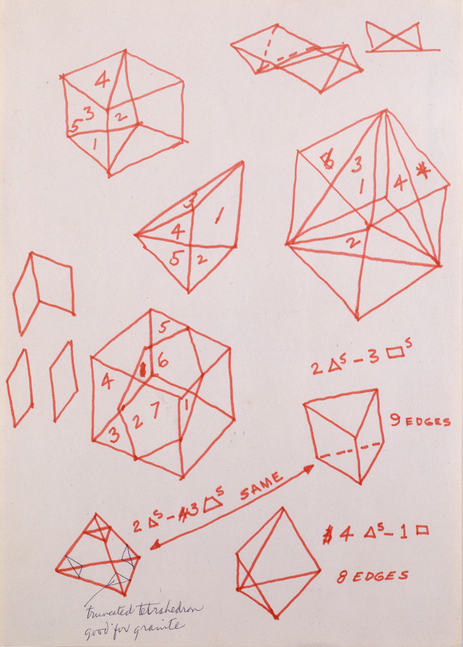 4
3
5
2
1
3
4
1
5
2
8
3
1
4
2
5
6
4
1
7
2
3
2 △S - 3 □S
9 EDGES
SAME
2 △S - 3 △S
4 △S - 1 □
8 EDGES
truncated tetrahedron
good for granite